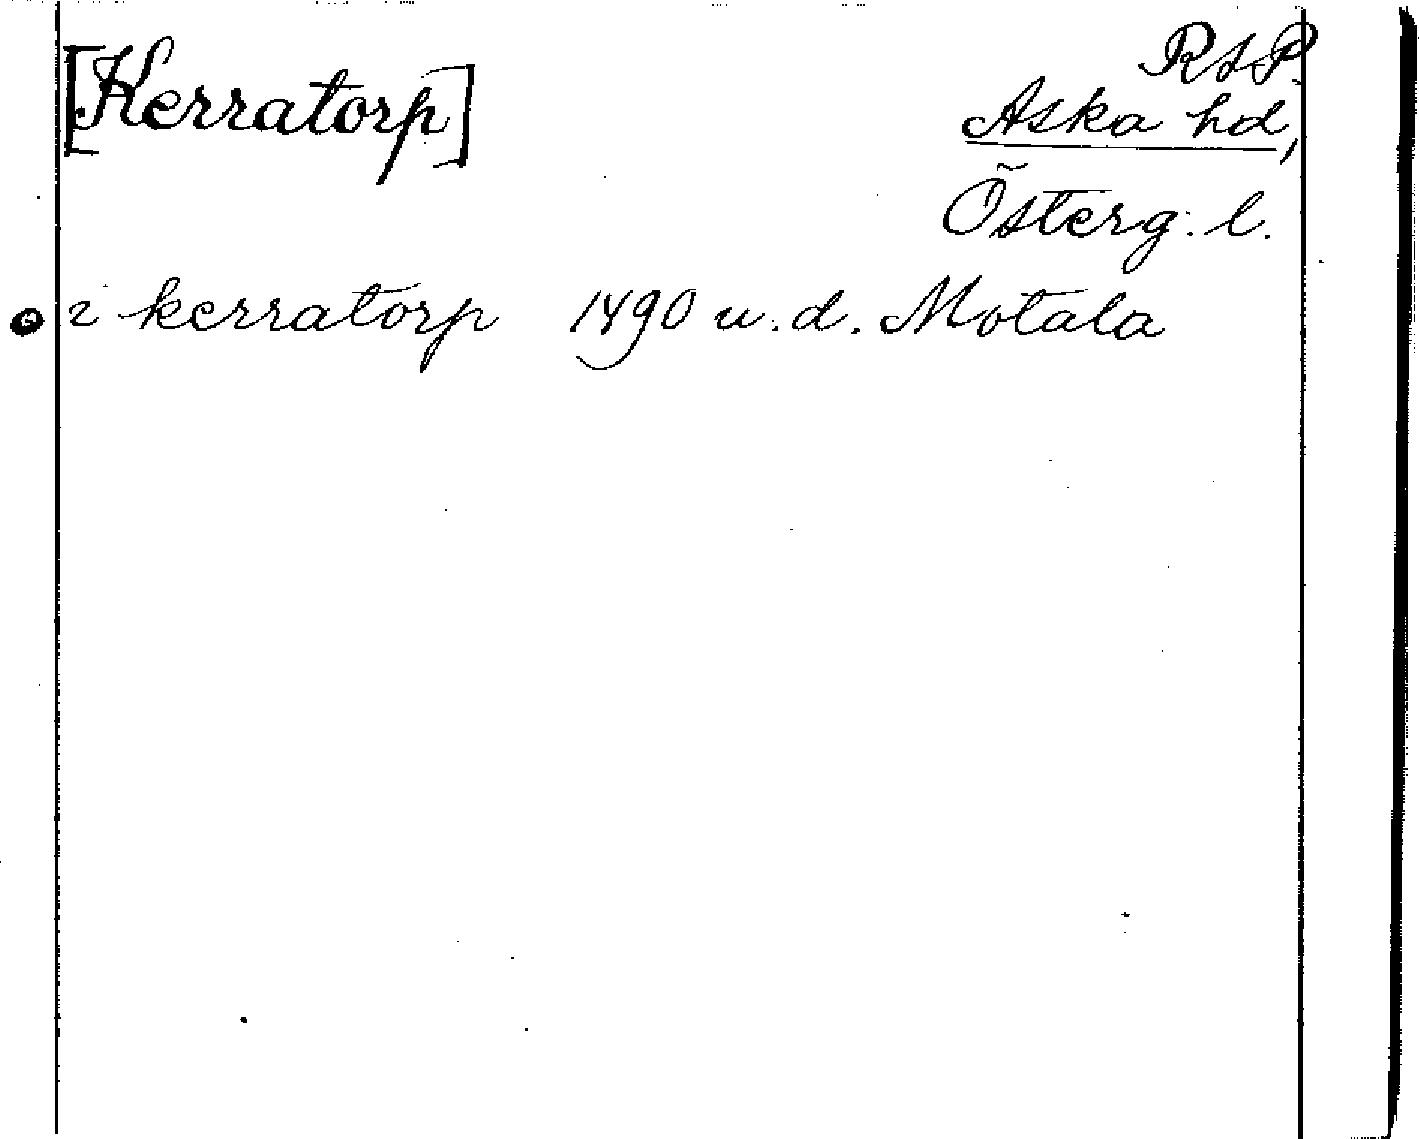 [Kerratorp]
RSP.
Aska hd,
Österg. l.
i kerratorp 1490 u. d. Motala